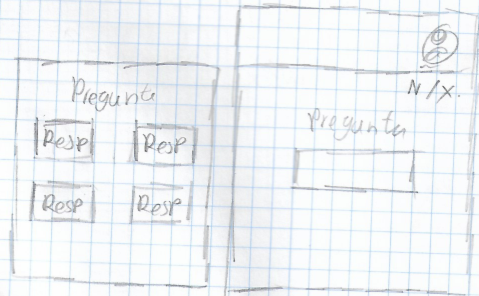 Pregunta
Resp Resp
Resp Resp
N/X.
Pregunta